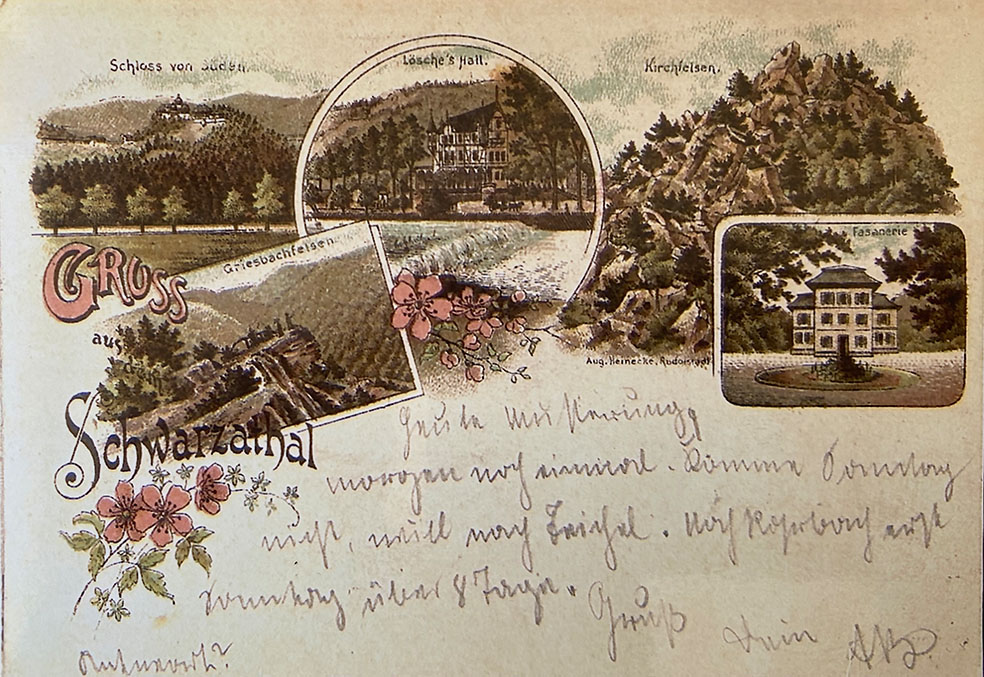 Schloss von Süden.
Lösche's Hall.
Kirchfelsen.
Fasanerie
Griesbachfelsen
GRUSS
aus
dem
Schwarzathal
Aug. Heinecke, Rudolstadt
Heute Musterung,
morgen noch einmal. Komme Sonntag
nicht, will nach Teichel. Nach Rohrbach erst
Sonntag über 8 Tage.
Gruß
Dein
Antwort?